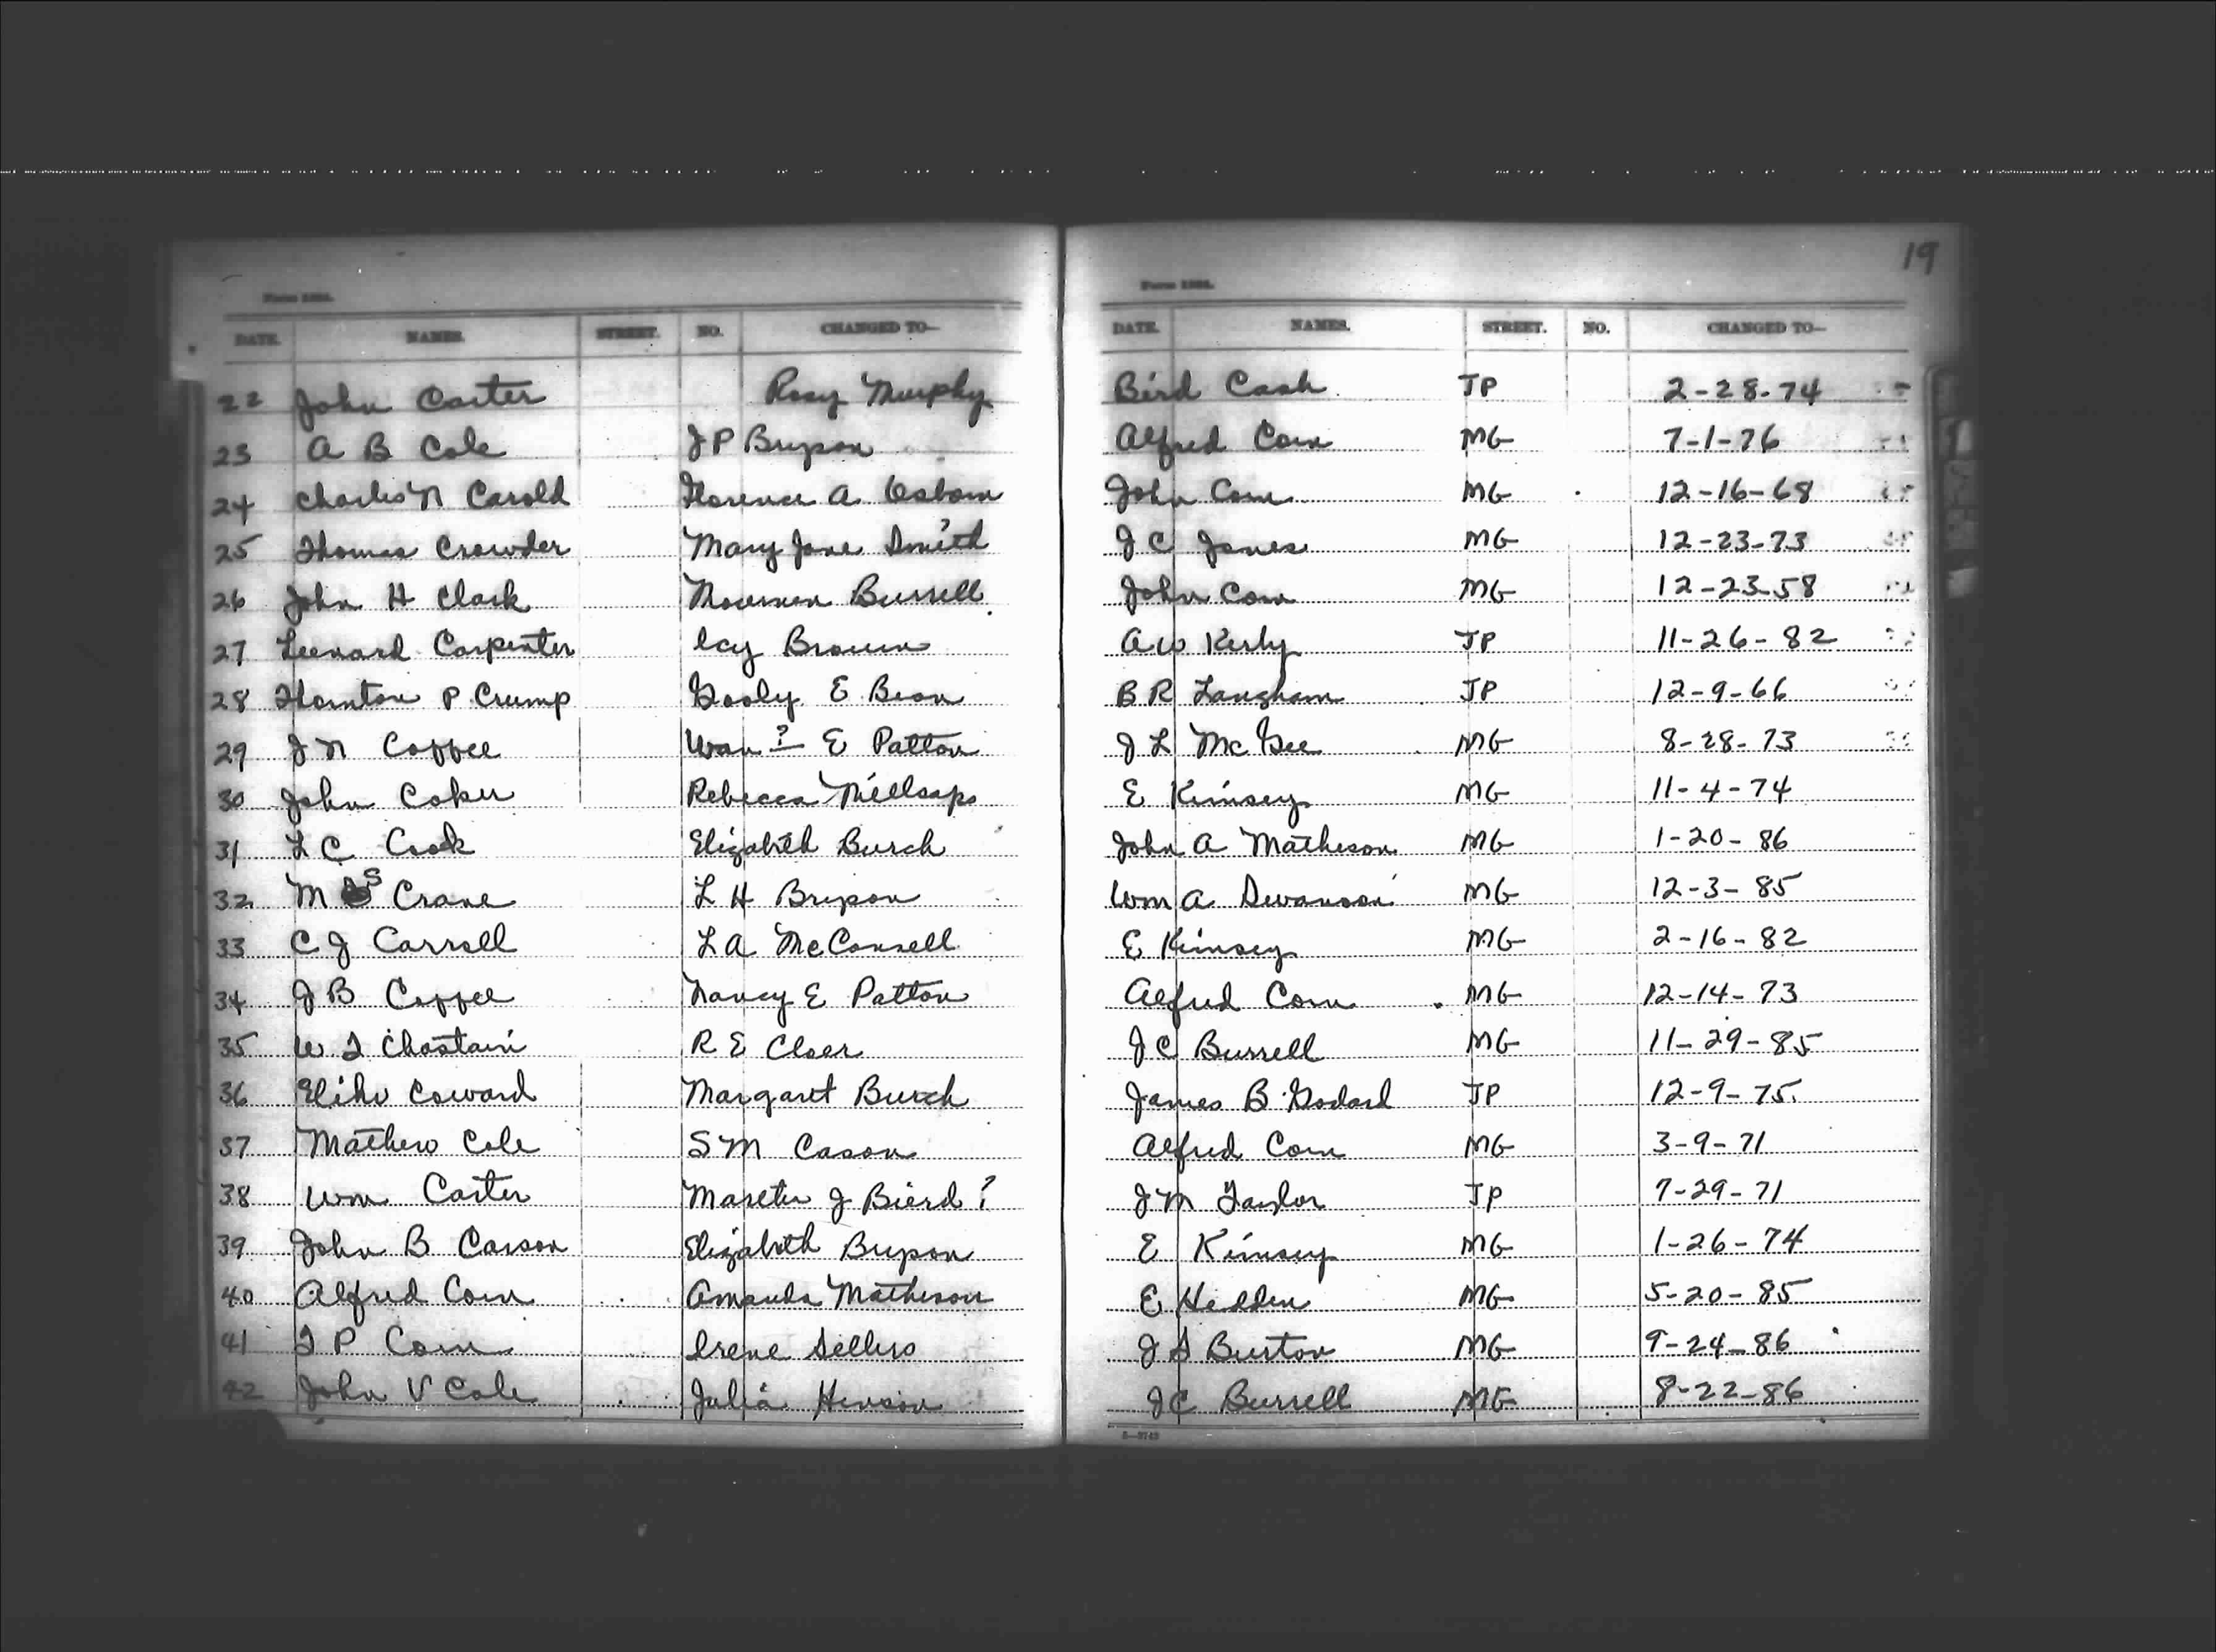 19
Form 1264. Form 1264.
DATE. NAMES. STREET. NO. CHANGED TO— DATE. NAMES. STREET. NO. CHANGED TO—
22 John Carter Rosy Murphy Bird Cash JP 2-28-74
23 A B Cole J P Bryson Alfred Corn MG 7-1-76
24 Charles N Carold Florence A Osborn John Corn MG 12-16-68
25 Thomas Crowder Mary Jane Smith J C Jones MG 12-23-73
26 John H Clark Burrell John Corn MG 12-23-58
27 Leonard Carpenter Icy Brown A W Kerly JP 11-26-82
28 Thornton P Crump E Bean B R Langham JP 12-9-66
29 J N Coffee Wan ? E Patton J L McGee MG 8-28-73
30 John Coker Rebecca Millsaps E Kimsey MG 11-4-74
31 L C Cook Elizabeth Burch John A Matheson MG 1-20-86
32 M S Crane L H Bryson Wm A Swanson MG 12-3-85
33 C J Carroll L A McConnell E Kimsey MG 2-16-82
34 J B Coffee Nancy E Patton Alfred Corn MG 12-14-73
35 W T Chastain R E Cloer J C Burrell MG 11-29-85
36 Elihu Coward Margaret Burch James B Godard JP 12-9-75
37 Mathew Cole S M Cason Alfred Corn MG 3-9-71
38 Wm Carter J Bierd ? J M Taylor JP 7-29-71
39 John B Carson Elizabeth Bryson E Kimsey MG 1-26-74
40 Alfred Corn Amanda Matheson E Hedden MG 5-20-85
41 T P Corn Irene Sellers J S Burton MG 9-24-86
42 John V Cole Julia Henson J C Burrell MG 8-22-86